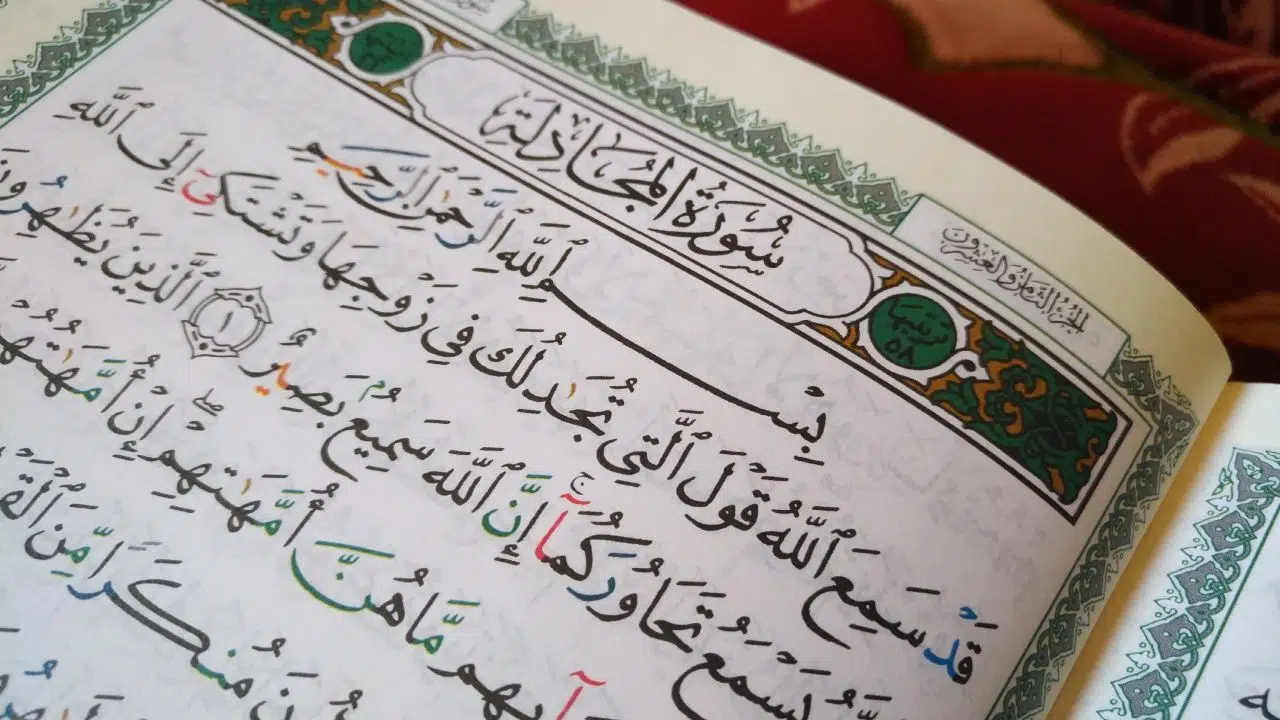 الجزء الثامن والعشرون
سُورَةُ المُجَادلَةِ
ترتيبها ٥٨
بِسْمِ ٱللَّهِ ٱلرَّحْمَٰنِ ٱلرَّحِيمِ
قَدْ سَمِعَ ٱللَّهُ قَوْلَ ٱلَّتِي تُجَٰدِلُكَ فِي زَوْجِهَا وَتَشْتَكِيٓ إِلَى ٱللَّهِ
يَسْمَعُ تَحَاوُرَكُمَآ ۚ إِنَّ ٱللَّهَ سَمِيعُۢ بَصِيرٌ ١ ٱلَّذِينَ يُظَٰهِرُونَ
مَّا هُنَّ أُمَّهَٰتِهِمْ ۖ إِنْ أُمَّهَٰتُهُمْ
مُنكَرًا مِّنَ